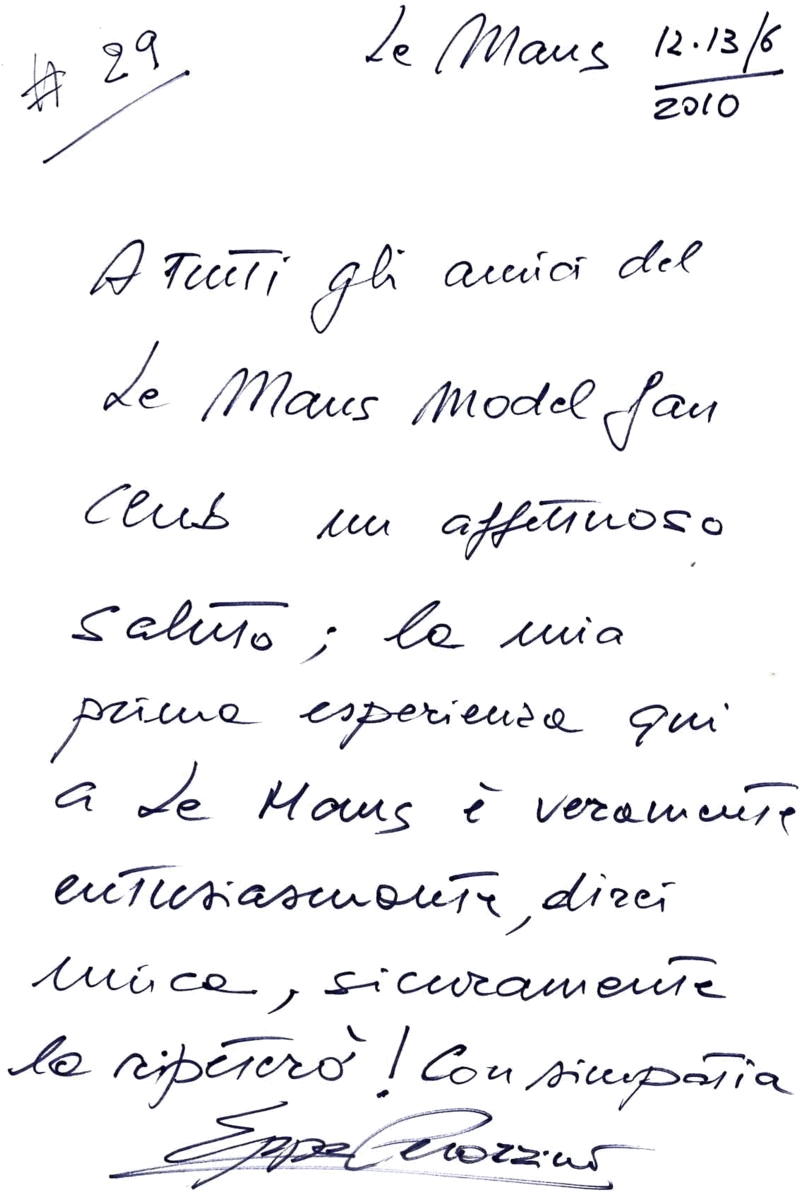 # 29
Le Mans 12.13/6
2010
A tutti gli amici del
Le Mans Model Fan
Club un affettuoso
saluto; la mia
prima esperienza qui
a Le Mans è veramente
entusiasmante, direi
unica, sicuramente
la ripeterò! Con simpatia